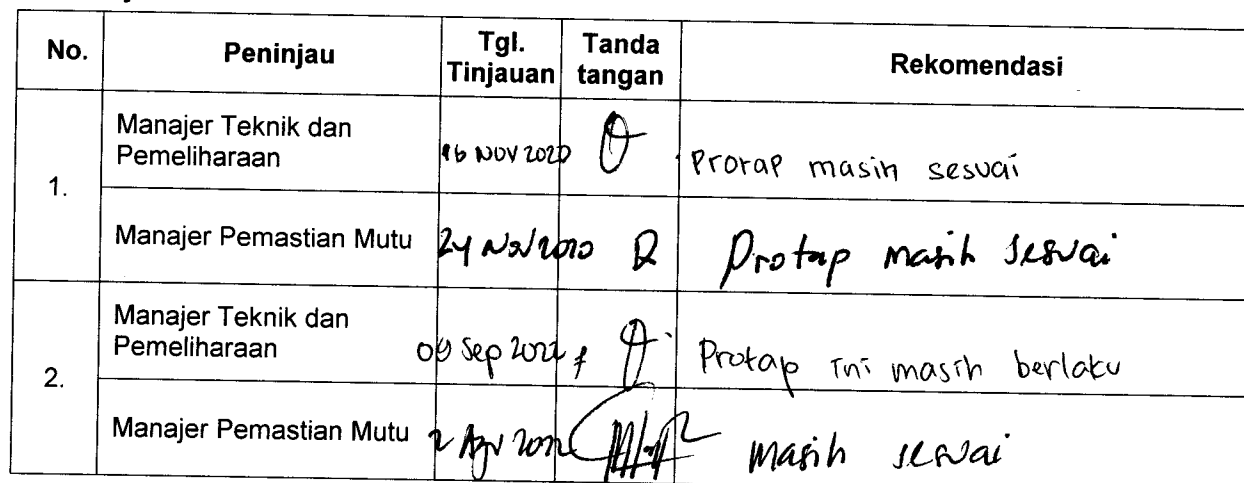 No. Peninjau Tgl. Tinjauan Tanda tangan Rekomendasi
1.
Manajer Teknik dan Pemeliharaan 16 NOV 2020 Protap masih sesuai
Manajer Pemastian Mutu 24 Nov 2020 Protap masih sesuai
2.
Manajer Teknik dan Pemeliharaan 09 Sep 2022 Protap ini masih berlaku
Manajer Pemastian Mutu 2022 masih sesuai